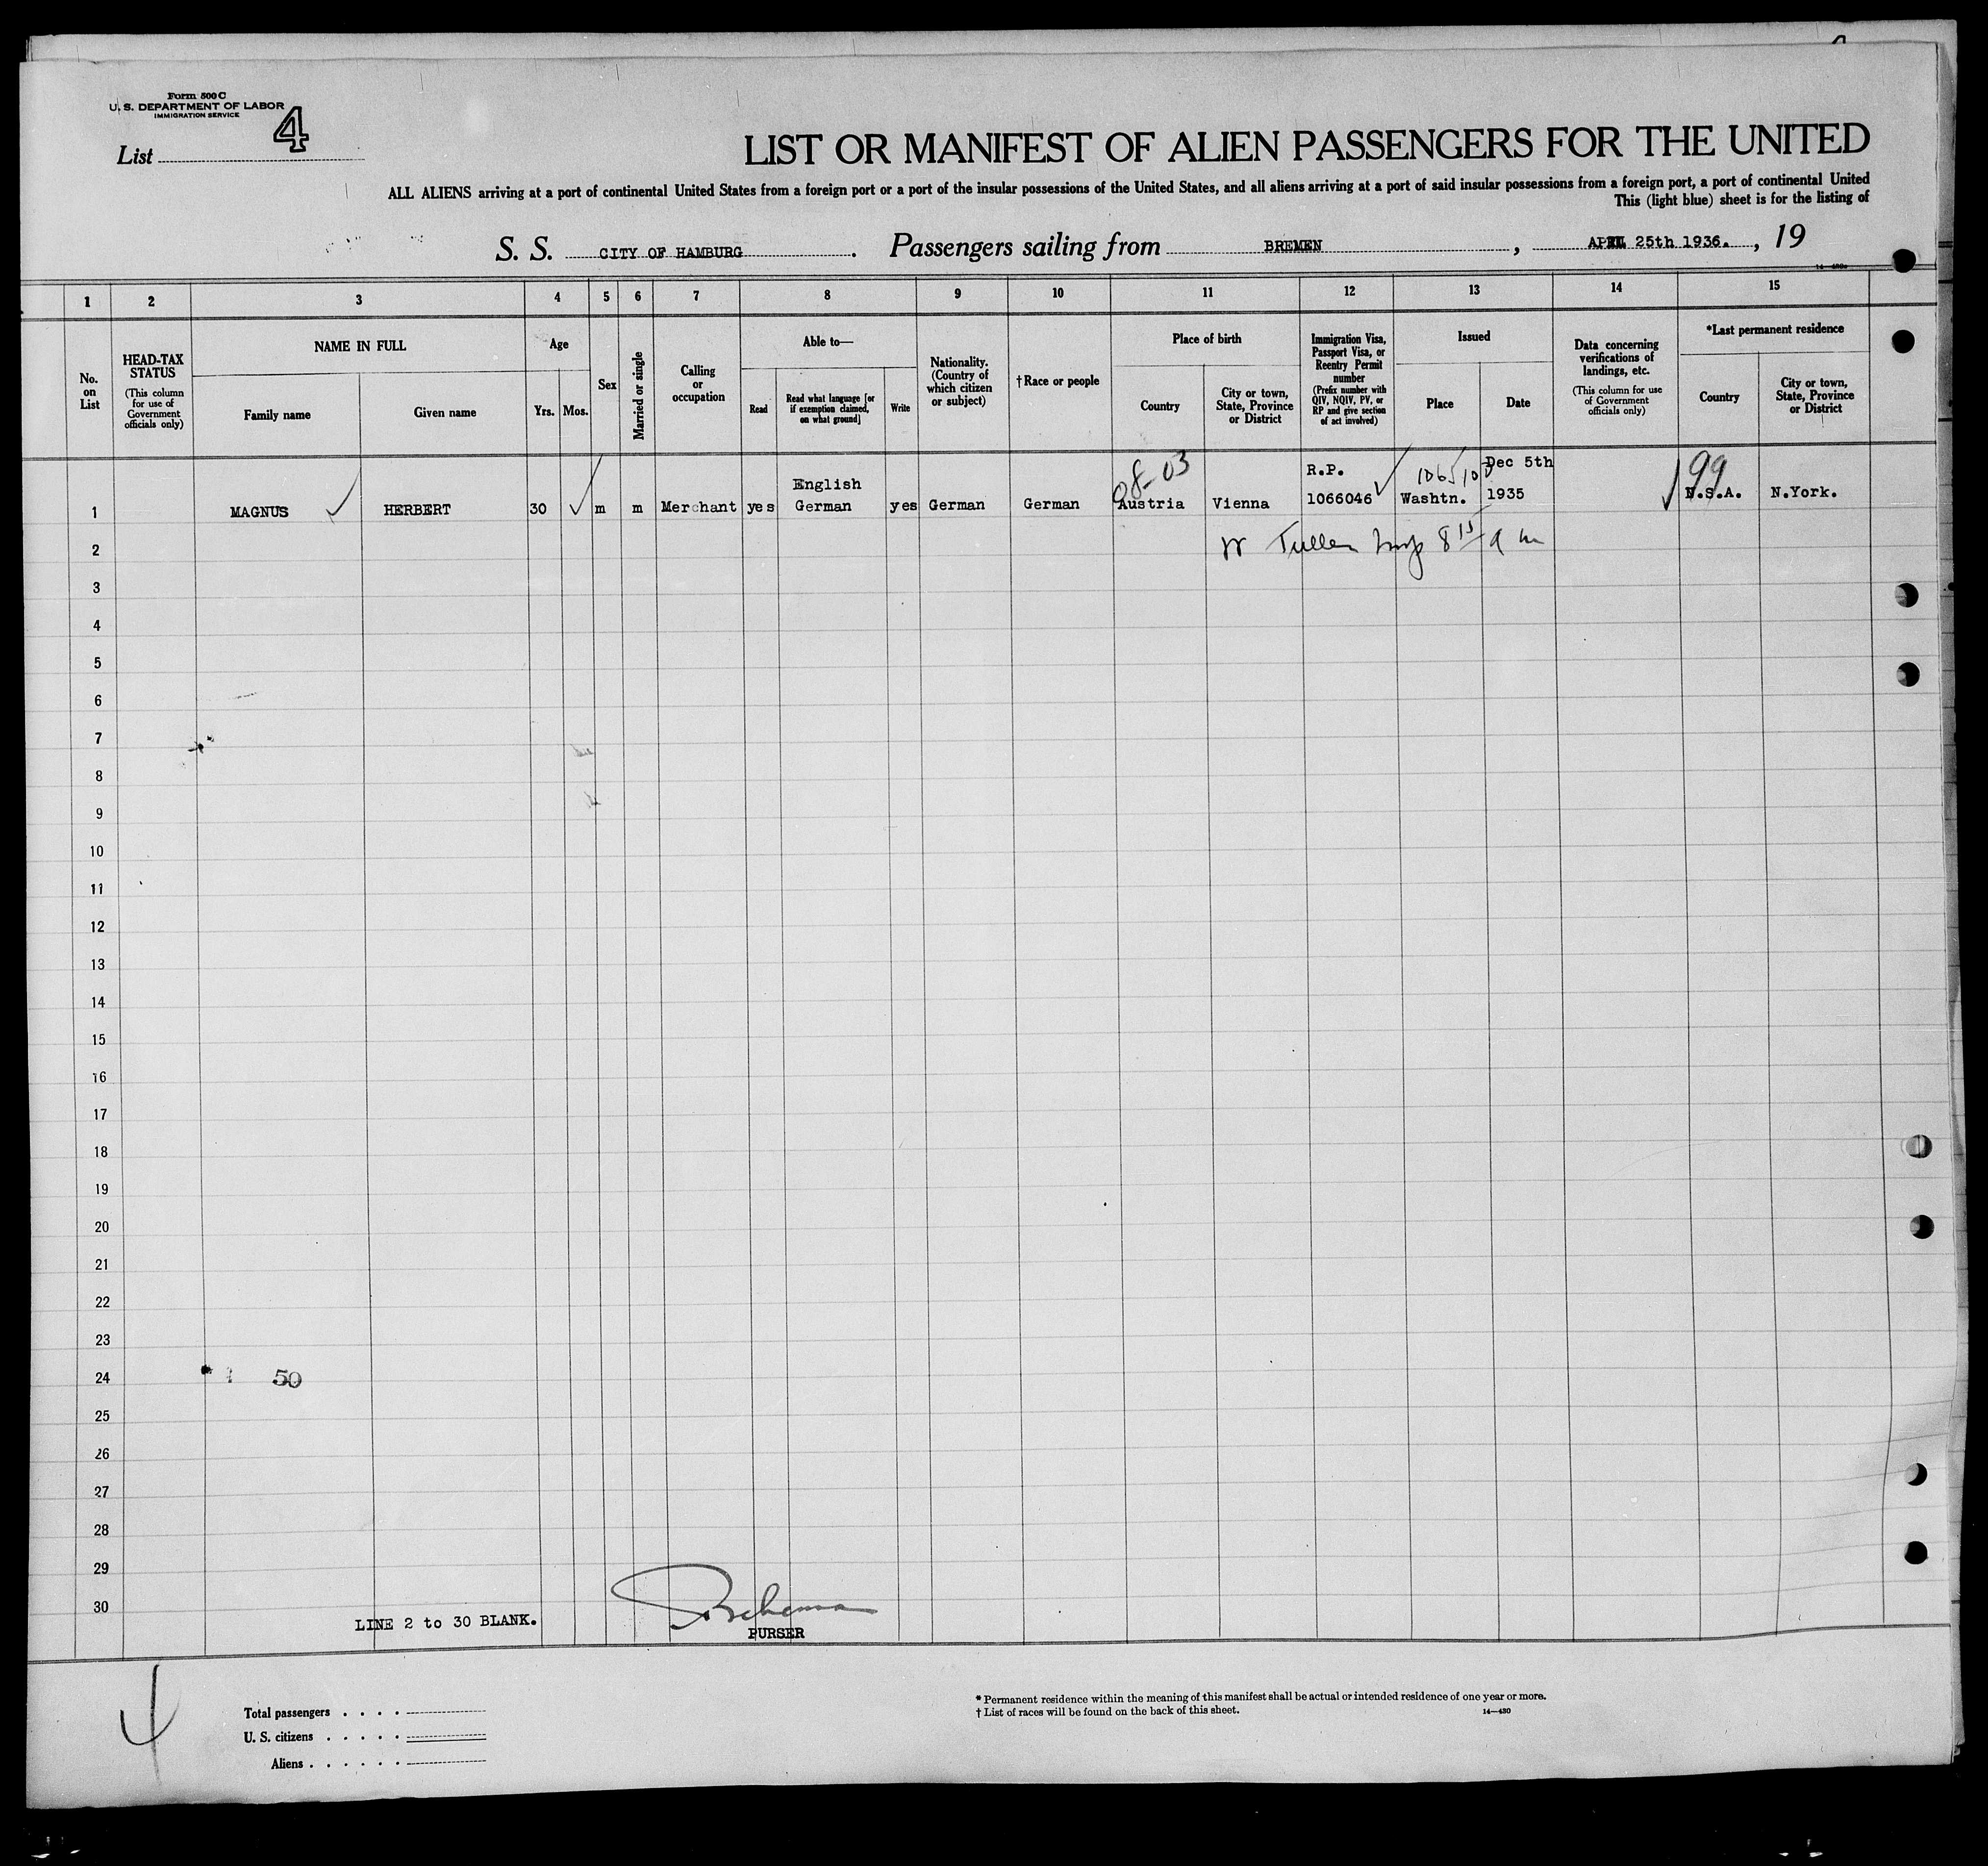 Form 500 C
U. S. DEPARTMENT OF LABOR
IMMIGRATION SERVICE
List 4
LIST OR MANIFEST OF ALIEN PASSENGERS FOR THE UNITED
ALL ALIENS arriving at a port of continental United States from a foreign port or a port of the insular possessions of the United States, and all aliens arriving at a port of said insular possessions from a foreign port, a port of continental United
This (light blue) sheet is for the listing of
S. S. CITY OF HAMBURG. Passengers sailing from BREMEN, APRIL 25th 1936., 19
1 2 3 4 5 6 7 8 9 10 11 12 13 14 15
No. on List
HEAD-TAX STATUS
(This column for use of Government officials only)
NAME IN FULL
Family name
Given name
Age
Yrs.
Mos.
Sex
Married or single
Calling or occupation
Able to—
Read
Read what language [or if exemption claimed, on what ground]
Write
Nationality. (Country of which citizen or subject)
†Race or people
Place of birth
Country
City or town, State, Province or District
Immigration Visa, Passport Visa, or Reentry Permit number
(Prefix number with QIV, NQIV, PV, or RP and give section of act involved)
Issued
Place
Date
Data concerning verifications of landings, etc.
(This column for use of Government officials only)
*Last permanent residence
Country
City or town, State, Province or District
08-03
R.P.
Dec 5th
99
1 MAGNUS HERBERT 30 m m Merchant yes English German yes German German Austria Vienna 1066046 Washtn. 1935 U.S.A. N.York.
2
3
4
5
6
7
8
9
10
11
12
13
14
15
16
17
18
19
20
21
22
23
24 50
25
26
27
28
29
30
LINE 2 to 30 BLANK.
PURSER
4
Total passengers . . . .
U. S. citizens . . . . .
Aliens . . . . . .
* Permanent residence within the meaning of this manifest shall be actual or intended residence of one year or more.
† List of races will be found on the back of this sheet.
14—430